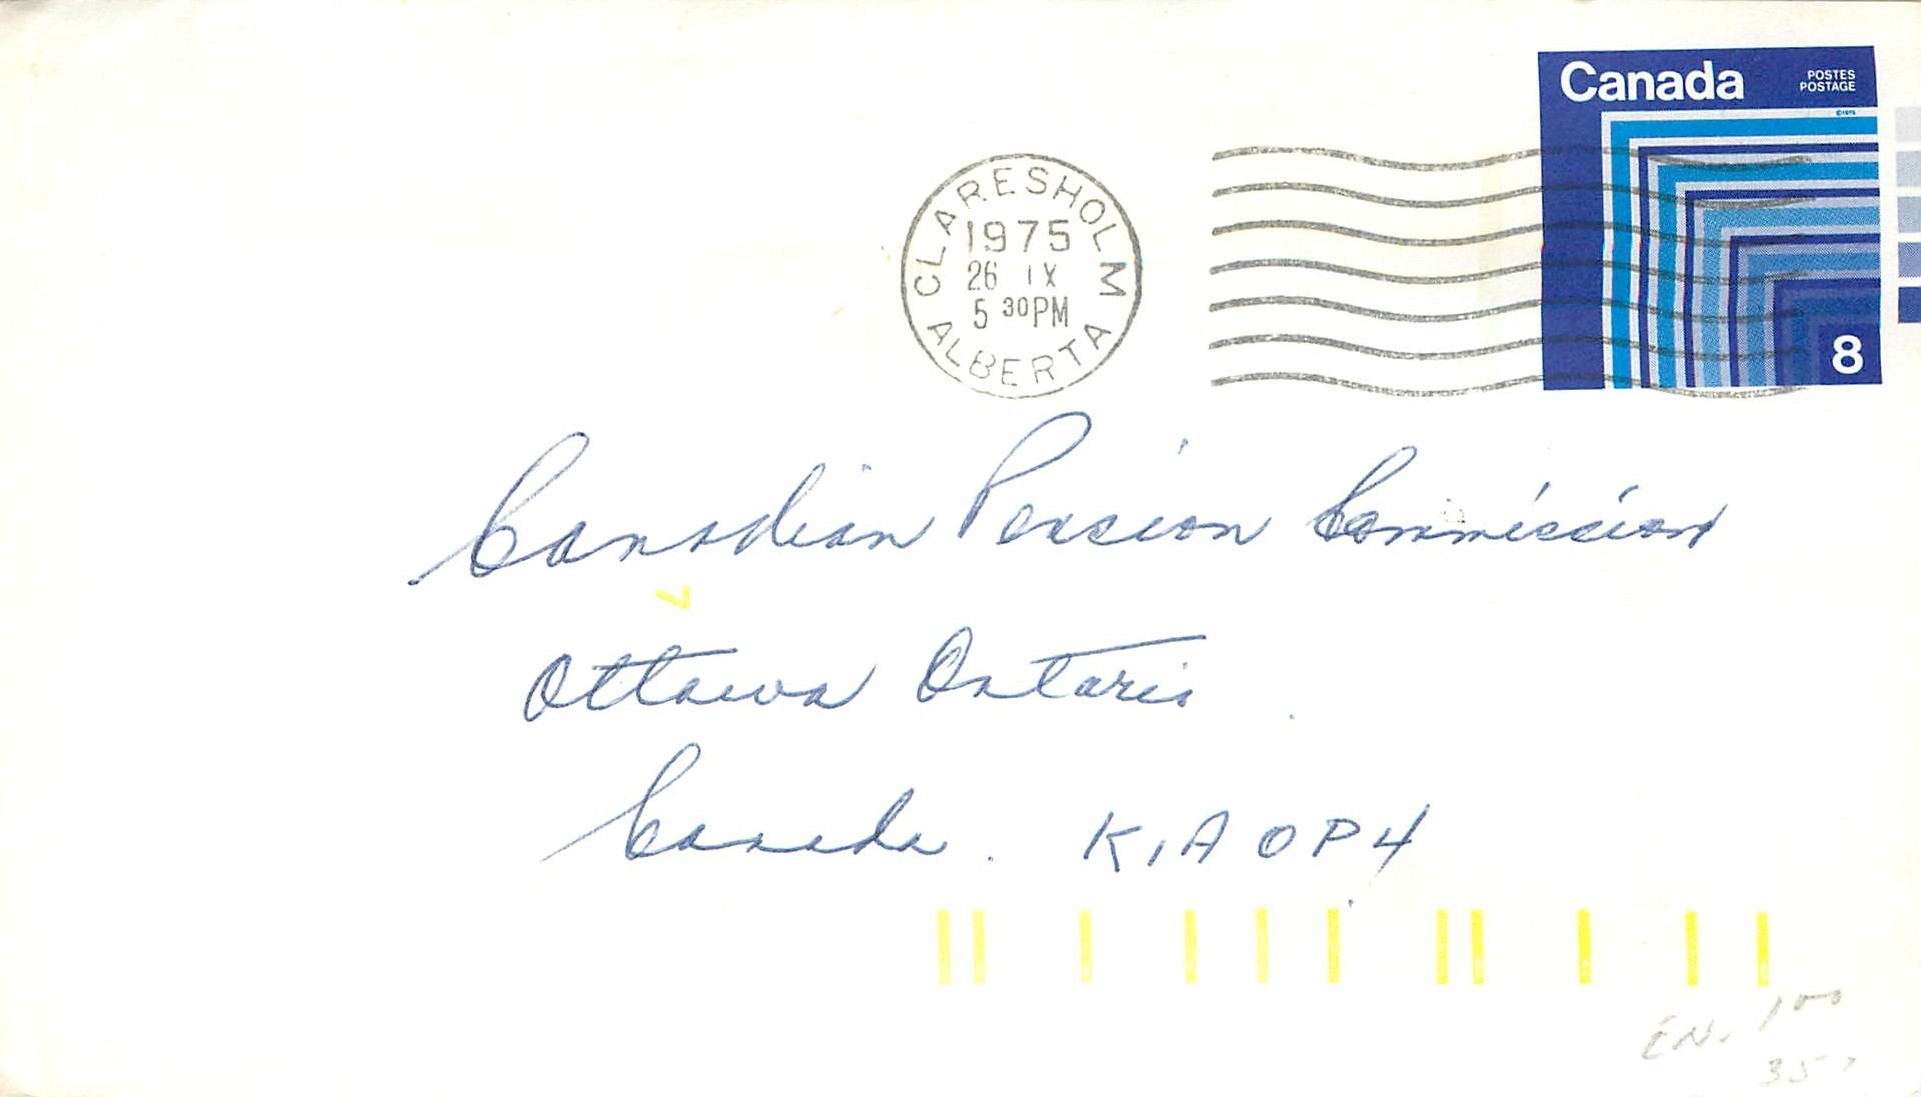 Canada
POSTES
POSTAGE
©1975
8
CLARESHOLM
1975
26 IX
5 30PM
ALBERTA
Canadian Pension Commission
Ottawa Ontario
Canada. K1A 0P4
7
EN. 1 00